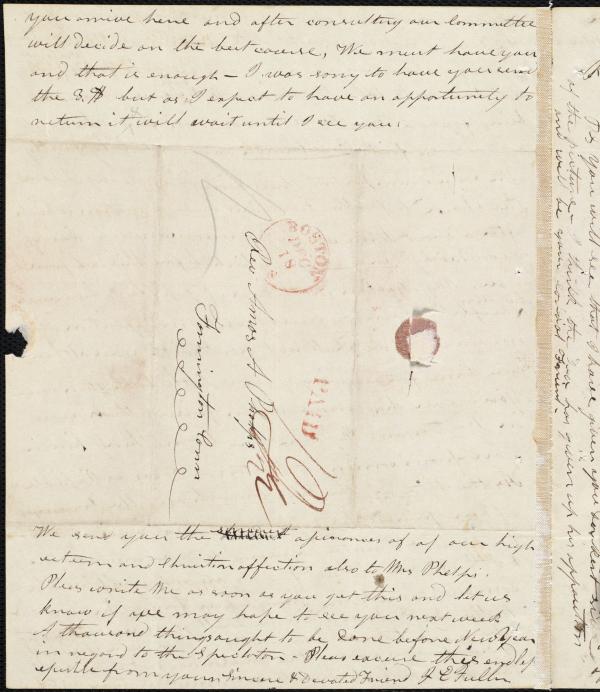 you arrive here and after consulting our Committee
will decide on the best course. We must have you
and that is enough – I was sorry to have you send
the 3.$ but as I expect to have an opportunity to
return it, will wait until I see you.
BOSTON
DEC
18
PAID
Rev Amos A Phelps
Farmington Conn
We send you the of our high
esteem and Christian affection also to Mrs Phelps.
Pleas write Me as soon as you get this and let us
know if we may hope to see you next week
A thousand things aught to be done before New Year
in regard to the – Pleas excuse this endless
epistle from your Sincere & Devoted Friend J E Fuller
you will see that I have given you
of the picture – I think the has given up his opposition
and will be your